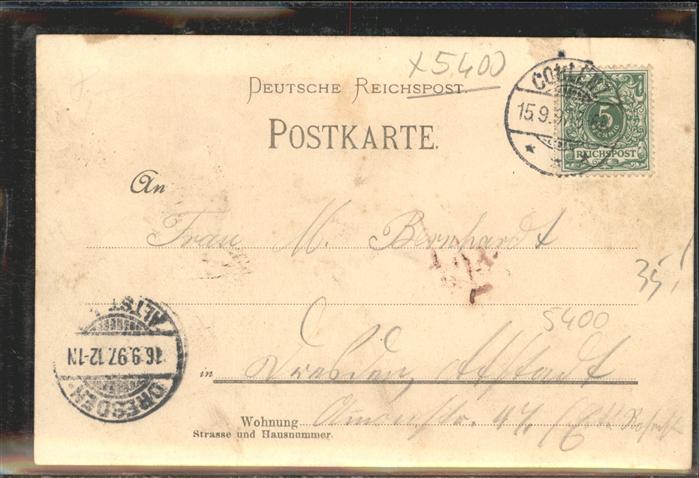 x 5400
DEUTSCHE REICHSPOST
POSTKARTE.
COBLENZ
15.9.97
5
REICHSPOST
An
Frau M. Bernhardt
35,-
5400
in Dresden Altstadt
Wohnung
Strasse und Hausnummer.
DRESDEN
ALTST.
16.9.97.12-1N